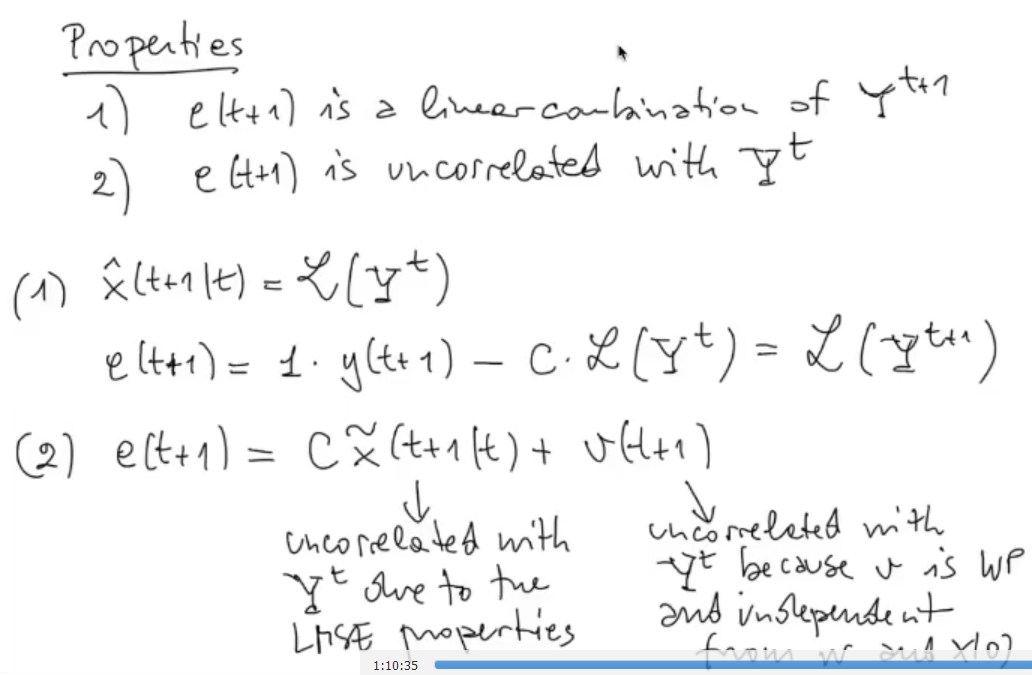 Properties
1) e(t+1) is a linear combination of Y^{t+1}
2) e(t+1) is uncorrelated with Y^t
(1) x̂(t+1|t) = ℒ(Y^t)
e(t+1) = 1 · y(t+1) - C · ℒ(Y^t) = ℒ(Y^{t+1})
(2) e(t+1) = C x̃(t+1|t) + v(t+1)
↓
uncorrelated with
Y^t due to the
LMSE properties
↘
uncorrelated with
Y^t because v is WP
and independent
from w and x(0)
1:10:35